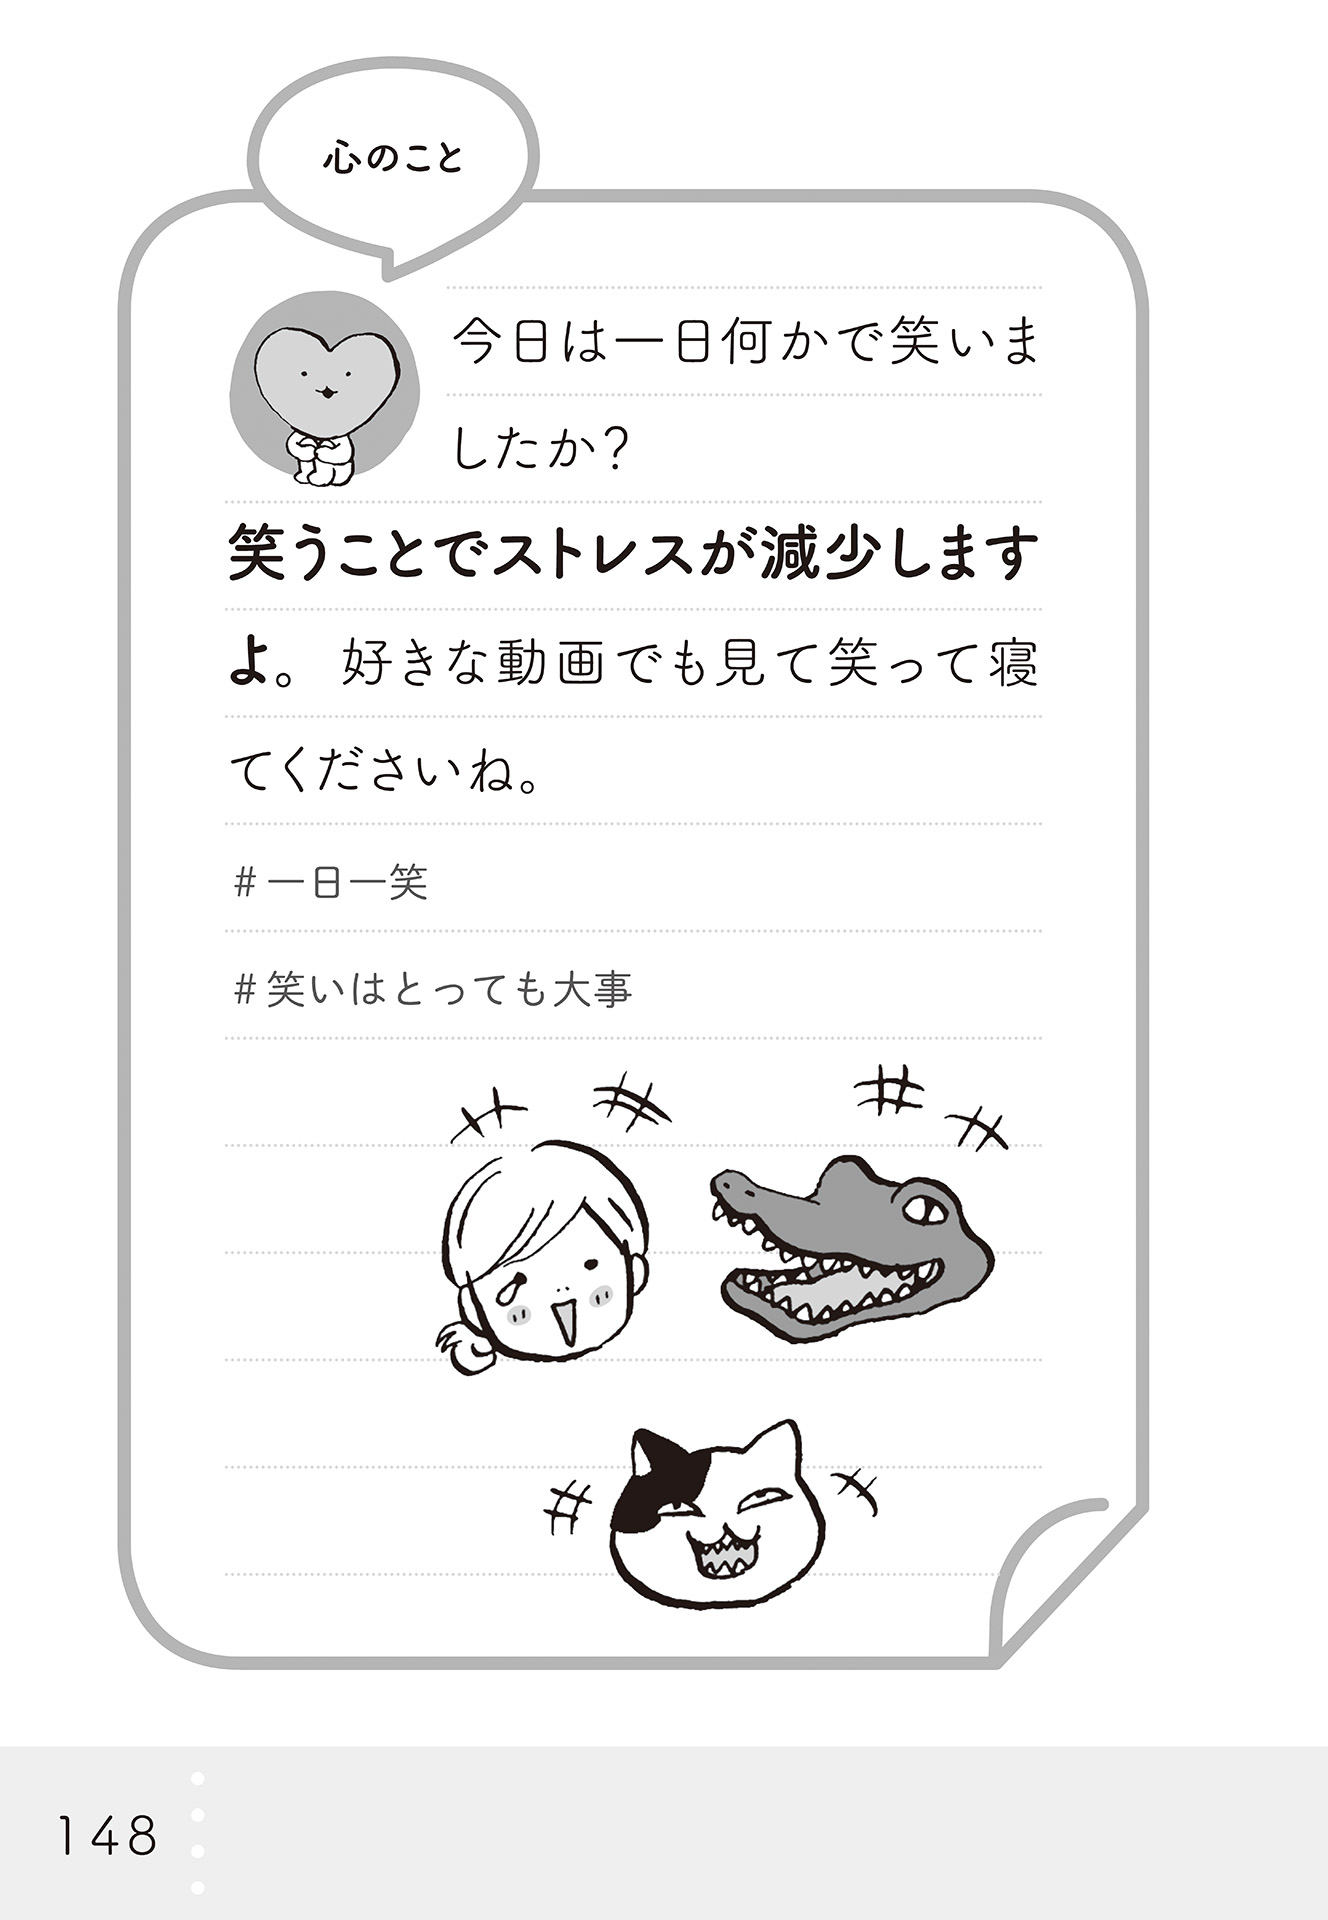 心のこと
今日は一日何かで笑いま
したか？
笑うことでストレスが減少します
よ。好きな動画でも見て笑って寝
てくださいね。
#一日一笑
#笑いはとっても大事
148